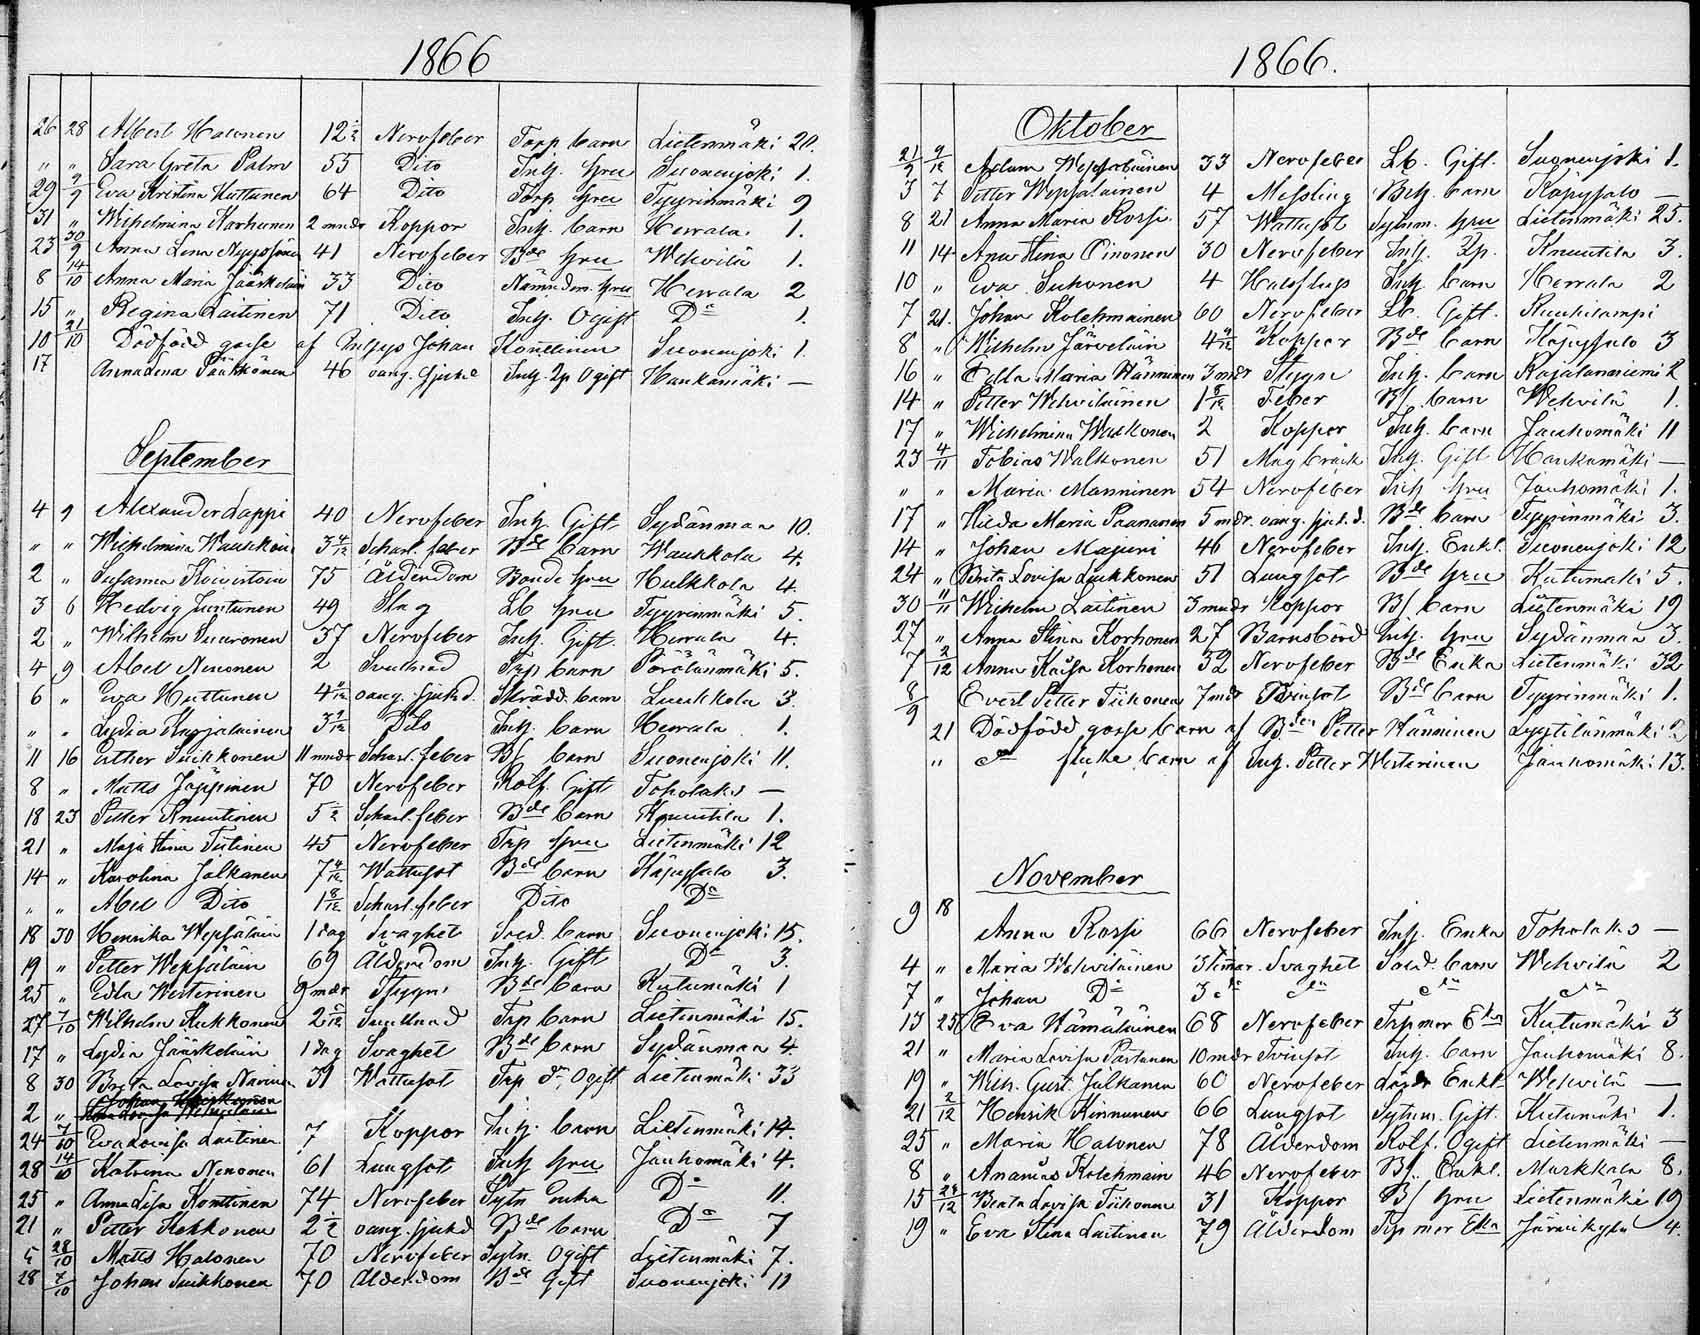 1866
26 28 Albert Halonen 12 1/2 Nervfeber Torp barn Lietenmäki 20.
" " Sara Greta Palm 55 Dito Inh. hru Suonenjoki 1.
29 9/9 Eva Kristina Huttunen 64 Dito Torp hru Tyyrinmäki 9
31 " Wilhelmina Korhonen 2 mndr Koppor Inh. barn Herrala 1.
23 30/9 Anna Lena 41 Nervfeber Bde hru Wehvilä 1.
8 14/10 Anna Maria Jääskeläin 33 Dito Nämndem. hru Herrala 2
15 " Regina Laitinen 71 Dito Inh. Ogift Do 1.
10 21/10 Dödfödd gosse af Inhys Johan Konttinen Suonenjoki 1.
17 Anna Lena Pääkkönen 46 oang. sjukd Inh. Ogift Haukamäki —
September
4 9 Alexander Lappi 40 Nervfeber Inh. Gift Sydänmaa 10.
" " Wilhelmina 3 4/12 Scharl. feber Bde barn Waukkola 4.
2 " Susanna Koivistoin 75 Ålderdom Bonde hru Hulkkola 4.
3 6 Hedvig Juntunen 49 Slag Lb hru Tyyrinmäki 5.
2 " Wilhelm Suuronen 37 Nervfeber Inh. Gift Herrala 4.
4 9 Abel Nenonen 2 Svullnad Trp barn Pörölänmäki 5.
6 " Eva Huttunen oang. sjukd. Skrädd. barn Luukkola 3.
" " Lydia Karjalainen Dito Inh. barn Herrala 1.
11 16 Esther Suikkonen 11 mndr Scharl. feber Bf barn Suonenjoki 11.
8 " Matts Jäppinen 70 Nervfeber Rolf. Gift Toholaks —
18 23 Petter Knuutinen 5 1/2 Scharl. feber Bde barn Knuutila 1.
21 " Maja Stina Tiitinen 45 Nervfeber Trp hru Lietenmäki 12
14 " Karolina Jalkanen Wattusot Bde barn Käpyssalo 3.
" " Abel Dito 1 8/12 Scharl. feber Dito Do
18 30 Henrika Wepsäläin 1 dag Svaghet Sold. barn Suonenjoki 15.
19 " Petter Wepsäläin 69 Ålderdom Inh. Gift Do 3.
25 " Edla Westerinen 9 mndr Stygn Bde barn Kutumäki 1
27 7/10 Wilhelm Kukkonen Svullnad Trp barn Lietenmäki 15.
17 " Lydia Jääskeläin 1 dag Svaghet Bde barn Sydänmaa 4.
8 30 Brita Lovisa 31 Wattusot Trp dr, Ogift Lietenmäki 33
2 "
24 7/10 Eva Lovisa Laitinen 7 Koppor Inh. barn Lietenmäki 14.
28 14/10 Katrina Nenonen 61 Lungsot Inh hru Jauhomäki 4.
25 " Anna Lisa Konttinen 74 Nervfeber Sytn Enka Do 11.
21 " Petter Kekkonen 2 1/2 oang. sjukd Bde barn Do 7
5 28/10 Matts Halonen 70 Nervfeber Sytn. Ogift Lietenmäki 7.
28 7/10 Johan Suikkonen 70 Ålderdom Bde Gift Suonenjoki 11
1866.
Oktober
21/9 9/12 Adam 33 Nervfeber Lb. Gift. Suonenjoki 1.
3 7 Petter Wepsäläinen 4 Messling Inh. barn Käpyssalo —
8 21 Anna Maria Rossi 57 Wattusot Sytnm. hru Lietenmäki 25.
11 14 Ana Stina Oinonen 30 Nervfeber Inh. Knuutila 3.
10 " Eva Suhonen 4 Halsfluss Inh. barn Herrala 2
7 21. Johan Kolehmainen 60 Nervfeber Lb. Gift. Ruuhilampi
8 " Wilhelm Järveläin Koppor Bde barn Käpyssalo 3
16 " Edla Maria Hänninen 3 mndr Stygn Inh. barn Rajalanniemi 2
14 " Petter Wehviläinen 1 8/12 Feber Bf barn Wehvilä 1.
17 " Wilhelmina 2 Koppor Inh. barn Jauhomäki 11
23 4/11 Tobias Walkonen 51 Magbråck Inh. Gift Haukamäki —
" " Maria Manninen 54 Nervfeber Inh hru Jauhomäki 1.
17 " Hilda Maria Paananen 5 mdr. oang. sjukd. Bde barn Tyyrinmäki 3.
14 " Johan Majuri 46 Nervfeber Inh. Enkl. Suonenjoki 12
24 " Brita Lovisa Lukkonen 51 Lungsot Bde hru Kutumäki 5.
30 11/11 Wilhelm Laitinen 3 mndr Koppor Bf barn Lietenmäki 19
27 " Anna Stina Korhonen 27 Barnsbörd Inh. hru Sydänmaa 3.
7 2/12 Anna Kajsa Korhonen 52 Nervfeber Bde Enka Lietenmäki 32
8/9 Evert Petter Tiikonen 7 mdr Tvinsot Bde barn Tyyrinmäki 1.
21 Dödfödd gosse barn af Bden Petter Hänninen Lyytilänmäki 2
" do flicke barn af Inh. Petter Westerinen Jauhomäki 13.
November
9 18 Anna Rossi 66 Nervfeber Inh. Enka Toholaks —
4 " Maria Wehviläinen 3 timar. Svaghet Sold. barn Wehvilä 2
7 " Johan Do 3 do do do
13 25 Eva Hämäläinen 68 Nervfeber Trp mor Eka Kutumäki 3
21 " Maria Lovisa Partanen 10 mdr Tvinsot Inh. barn Jauhomäki 8.
19 " Wilh. Gust. Jalkanen 60 Nervfeber Enkl. Wehvilä —
21 2/12 Henrik Kinnunen 66 Lungsot Sytnm. Gift Kutumäki 1.
25 " Maria Halonen 78 Ålderdom Rolf. Ogift Lietenmäki —
8 " Ananias Kolehmain 46 Nervfeber Bf. Enkl. Markkala 8.
15 23/12 Beata Lovisa Tiihonen 31 Koppor Bf hru Lietenmäki 19
19 " Eva Stina Laitinen 79 Ålderdom Trp mor Eka Järvikylä 4.